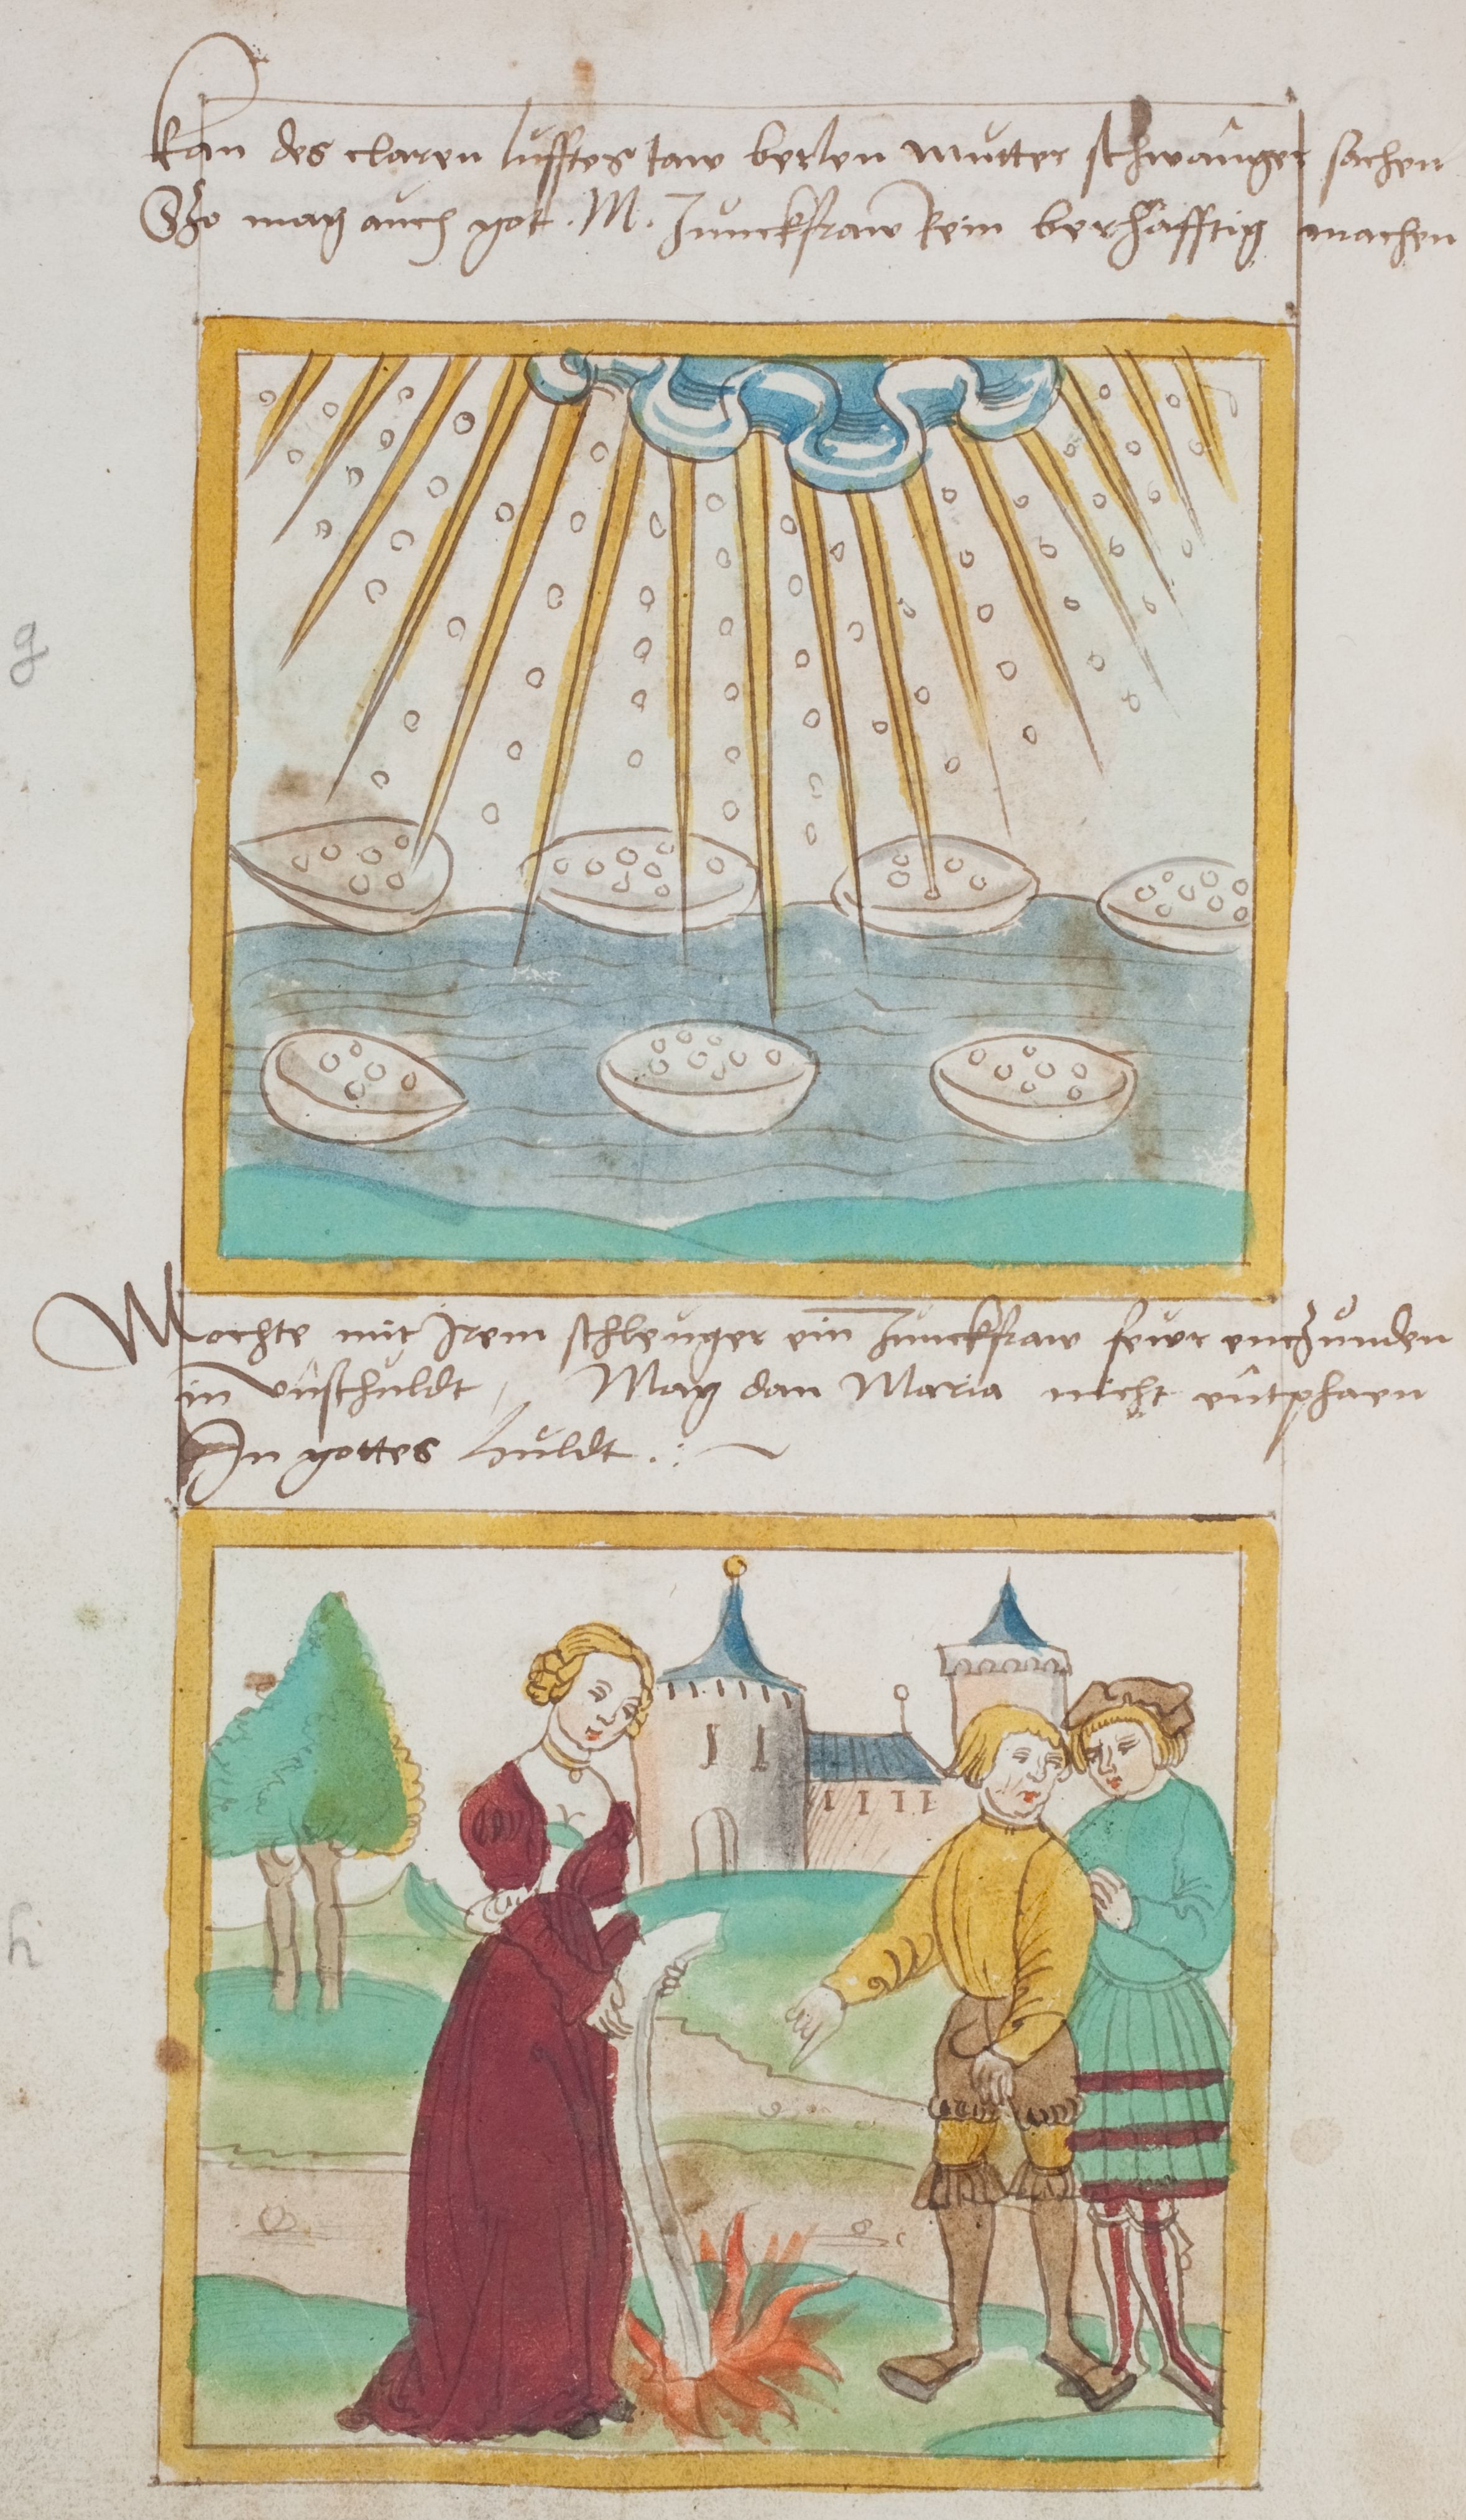 Kan des claren lufftes taw berlen mutter schwanger sachen
Szo mag auch got .M. Junckfraw rein berhafftig machen
g
Mochte mit Irem schleyger ein Junckfraw fewr enczunden
in unschuldt / Mag dan Maria nicht entphaen
In gottes huldt .:~
h